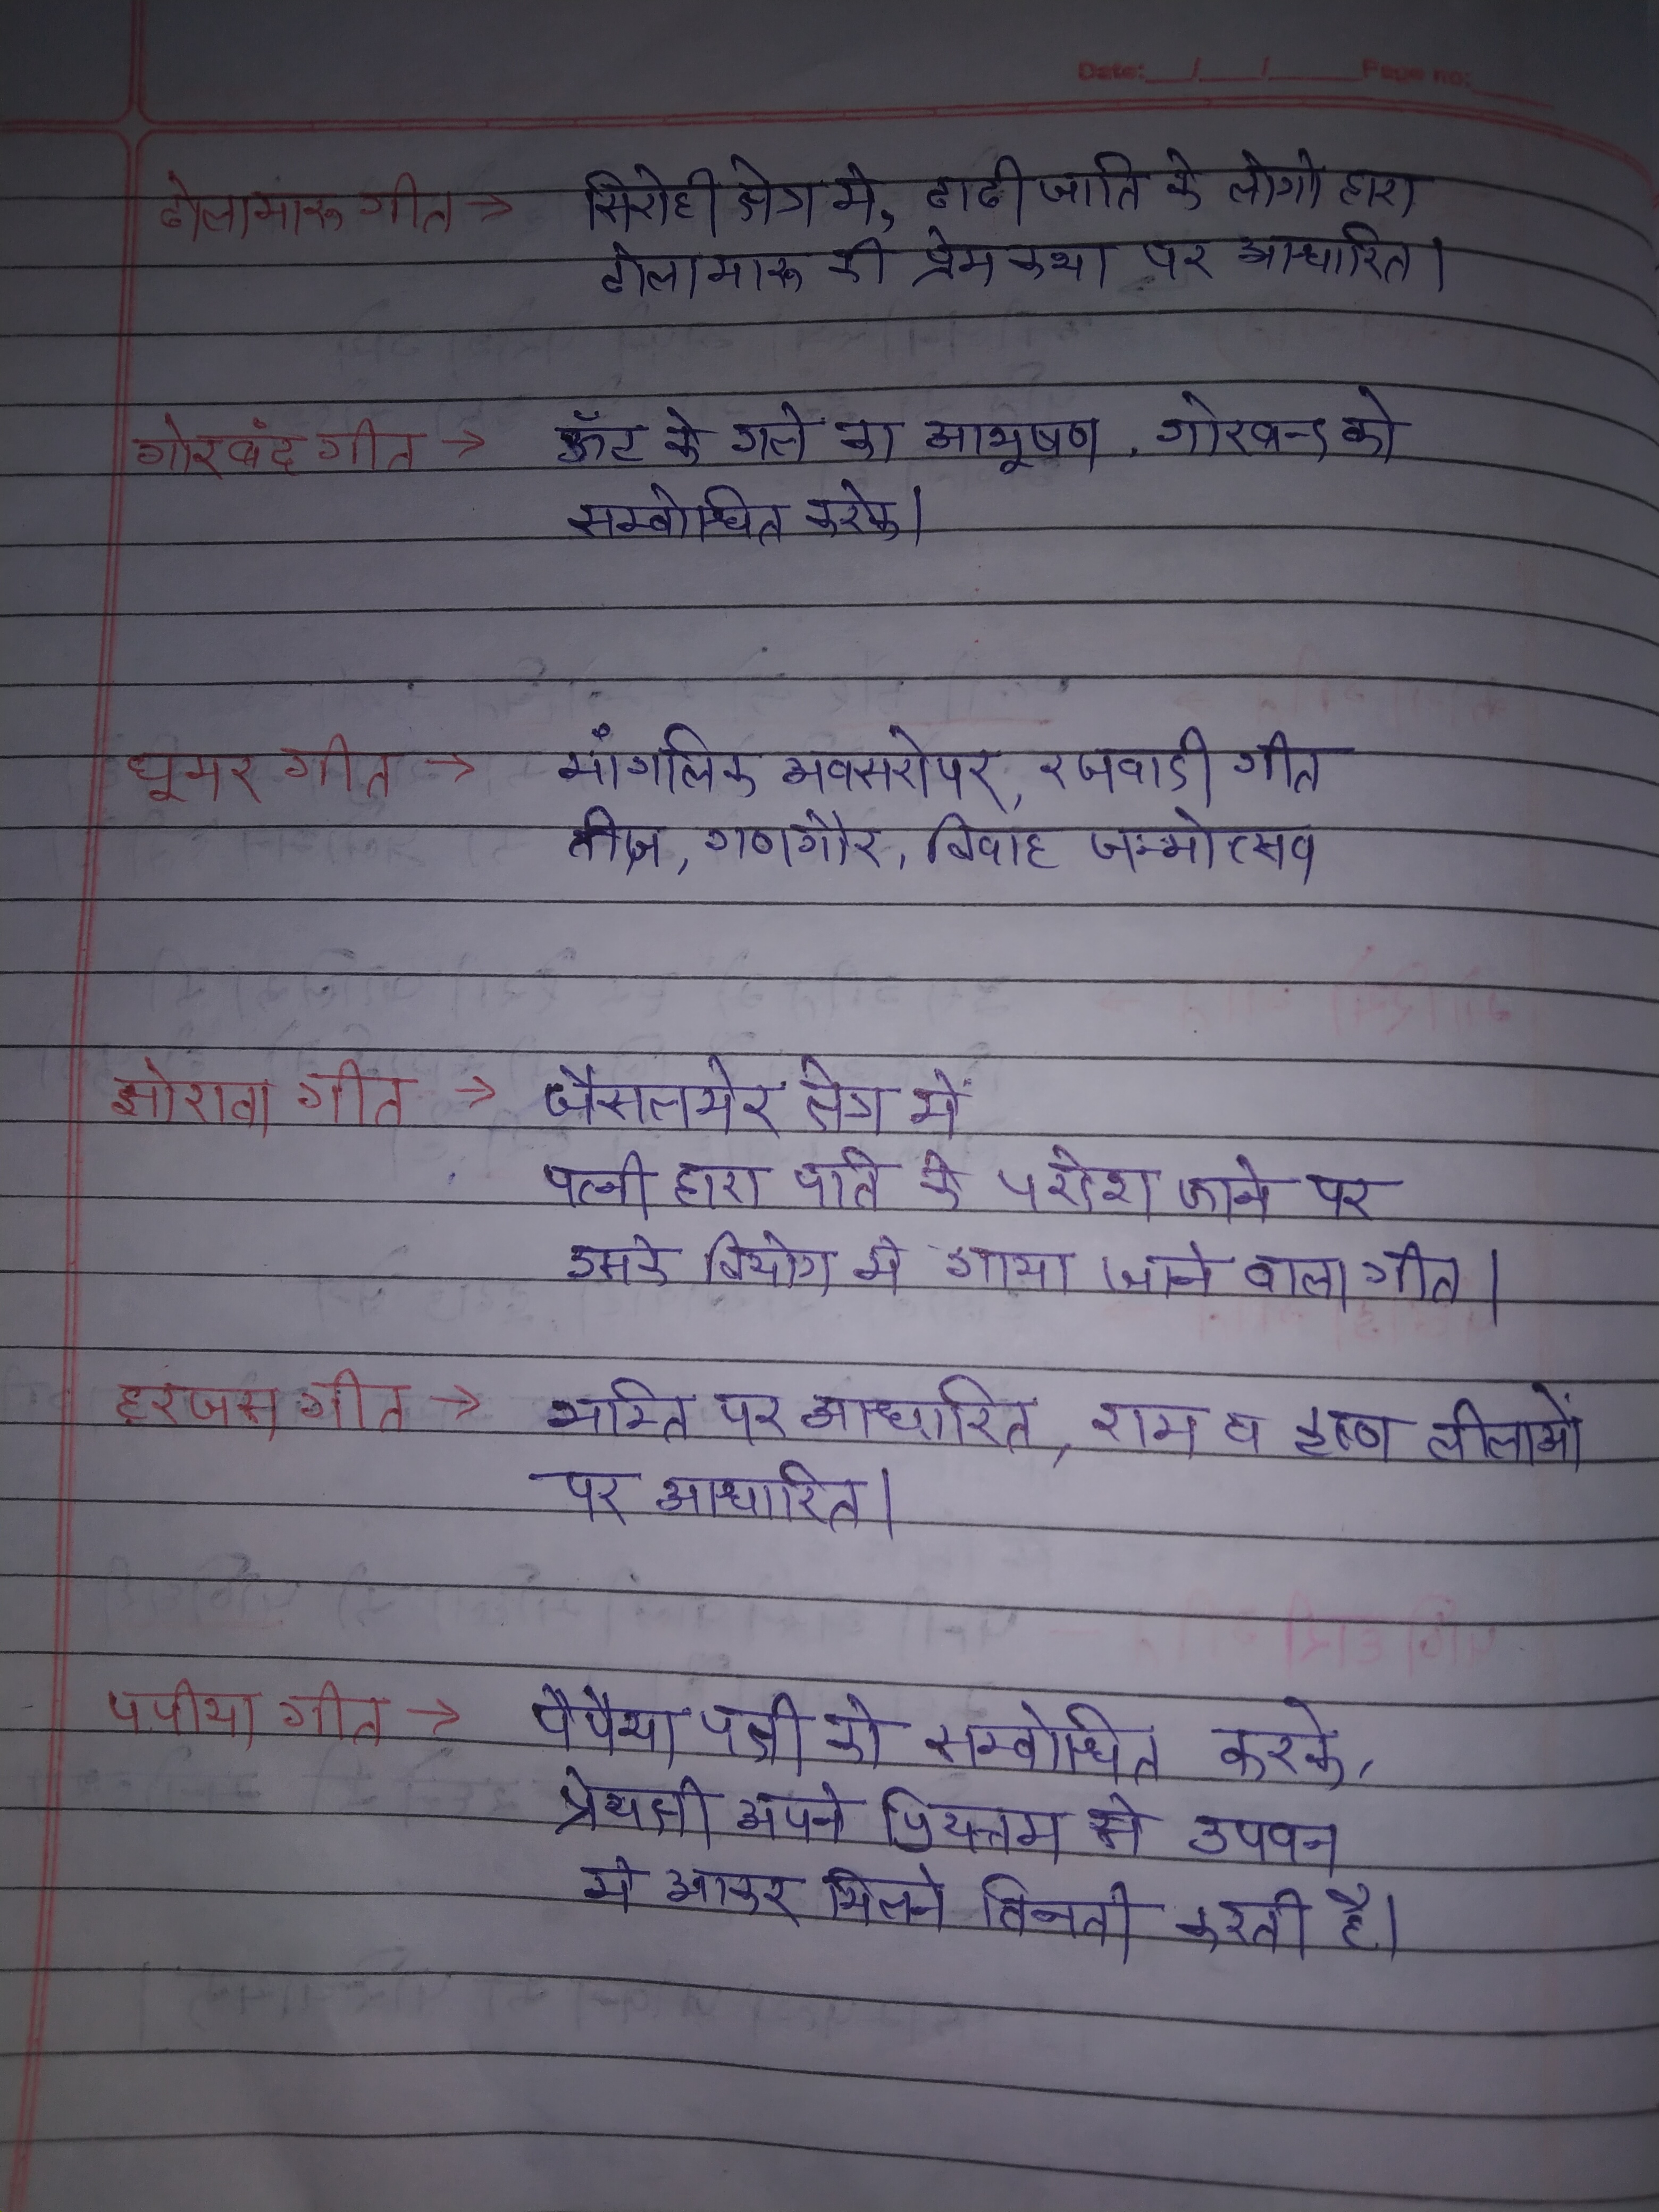 Date:___/___/_____Page no:_____
ढोलामारू गीत → सिरोही क्षेत्र मे, ढाढी जाति के लोगो द्वारा
ढोलामारू की प्रेमकथा पर आधारित।
गोरबंद गीत → ऊँट के गले का आभूषण, गोरबन्द को
सम्बोधित करके।
घूमर गीत → माँगलिक अवसरोपर, रजवाडी गीत
तीज, गणगौर, विवाह जन्मोत्सव
झोरावा गीत → जैसलमेर क्षेत्र में
पत्नी द्वारा पति के परदेश जाने पर
उसके वियोग मे गाया जाने वाला गीत।
हरजस गीत → भक्ति पर आधारित, राम व कृष्ण लीलाओं
पर आधारित।
पपीया गीत → पैपैया पक्षी को सम्बोधित करके,
प्रेयसी अपने प्रियत्तम से उपवन
मे आकर मिलने विनती करती है।